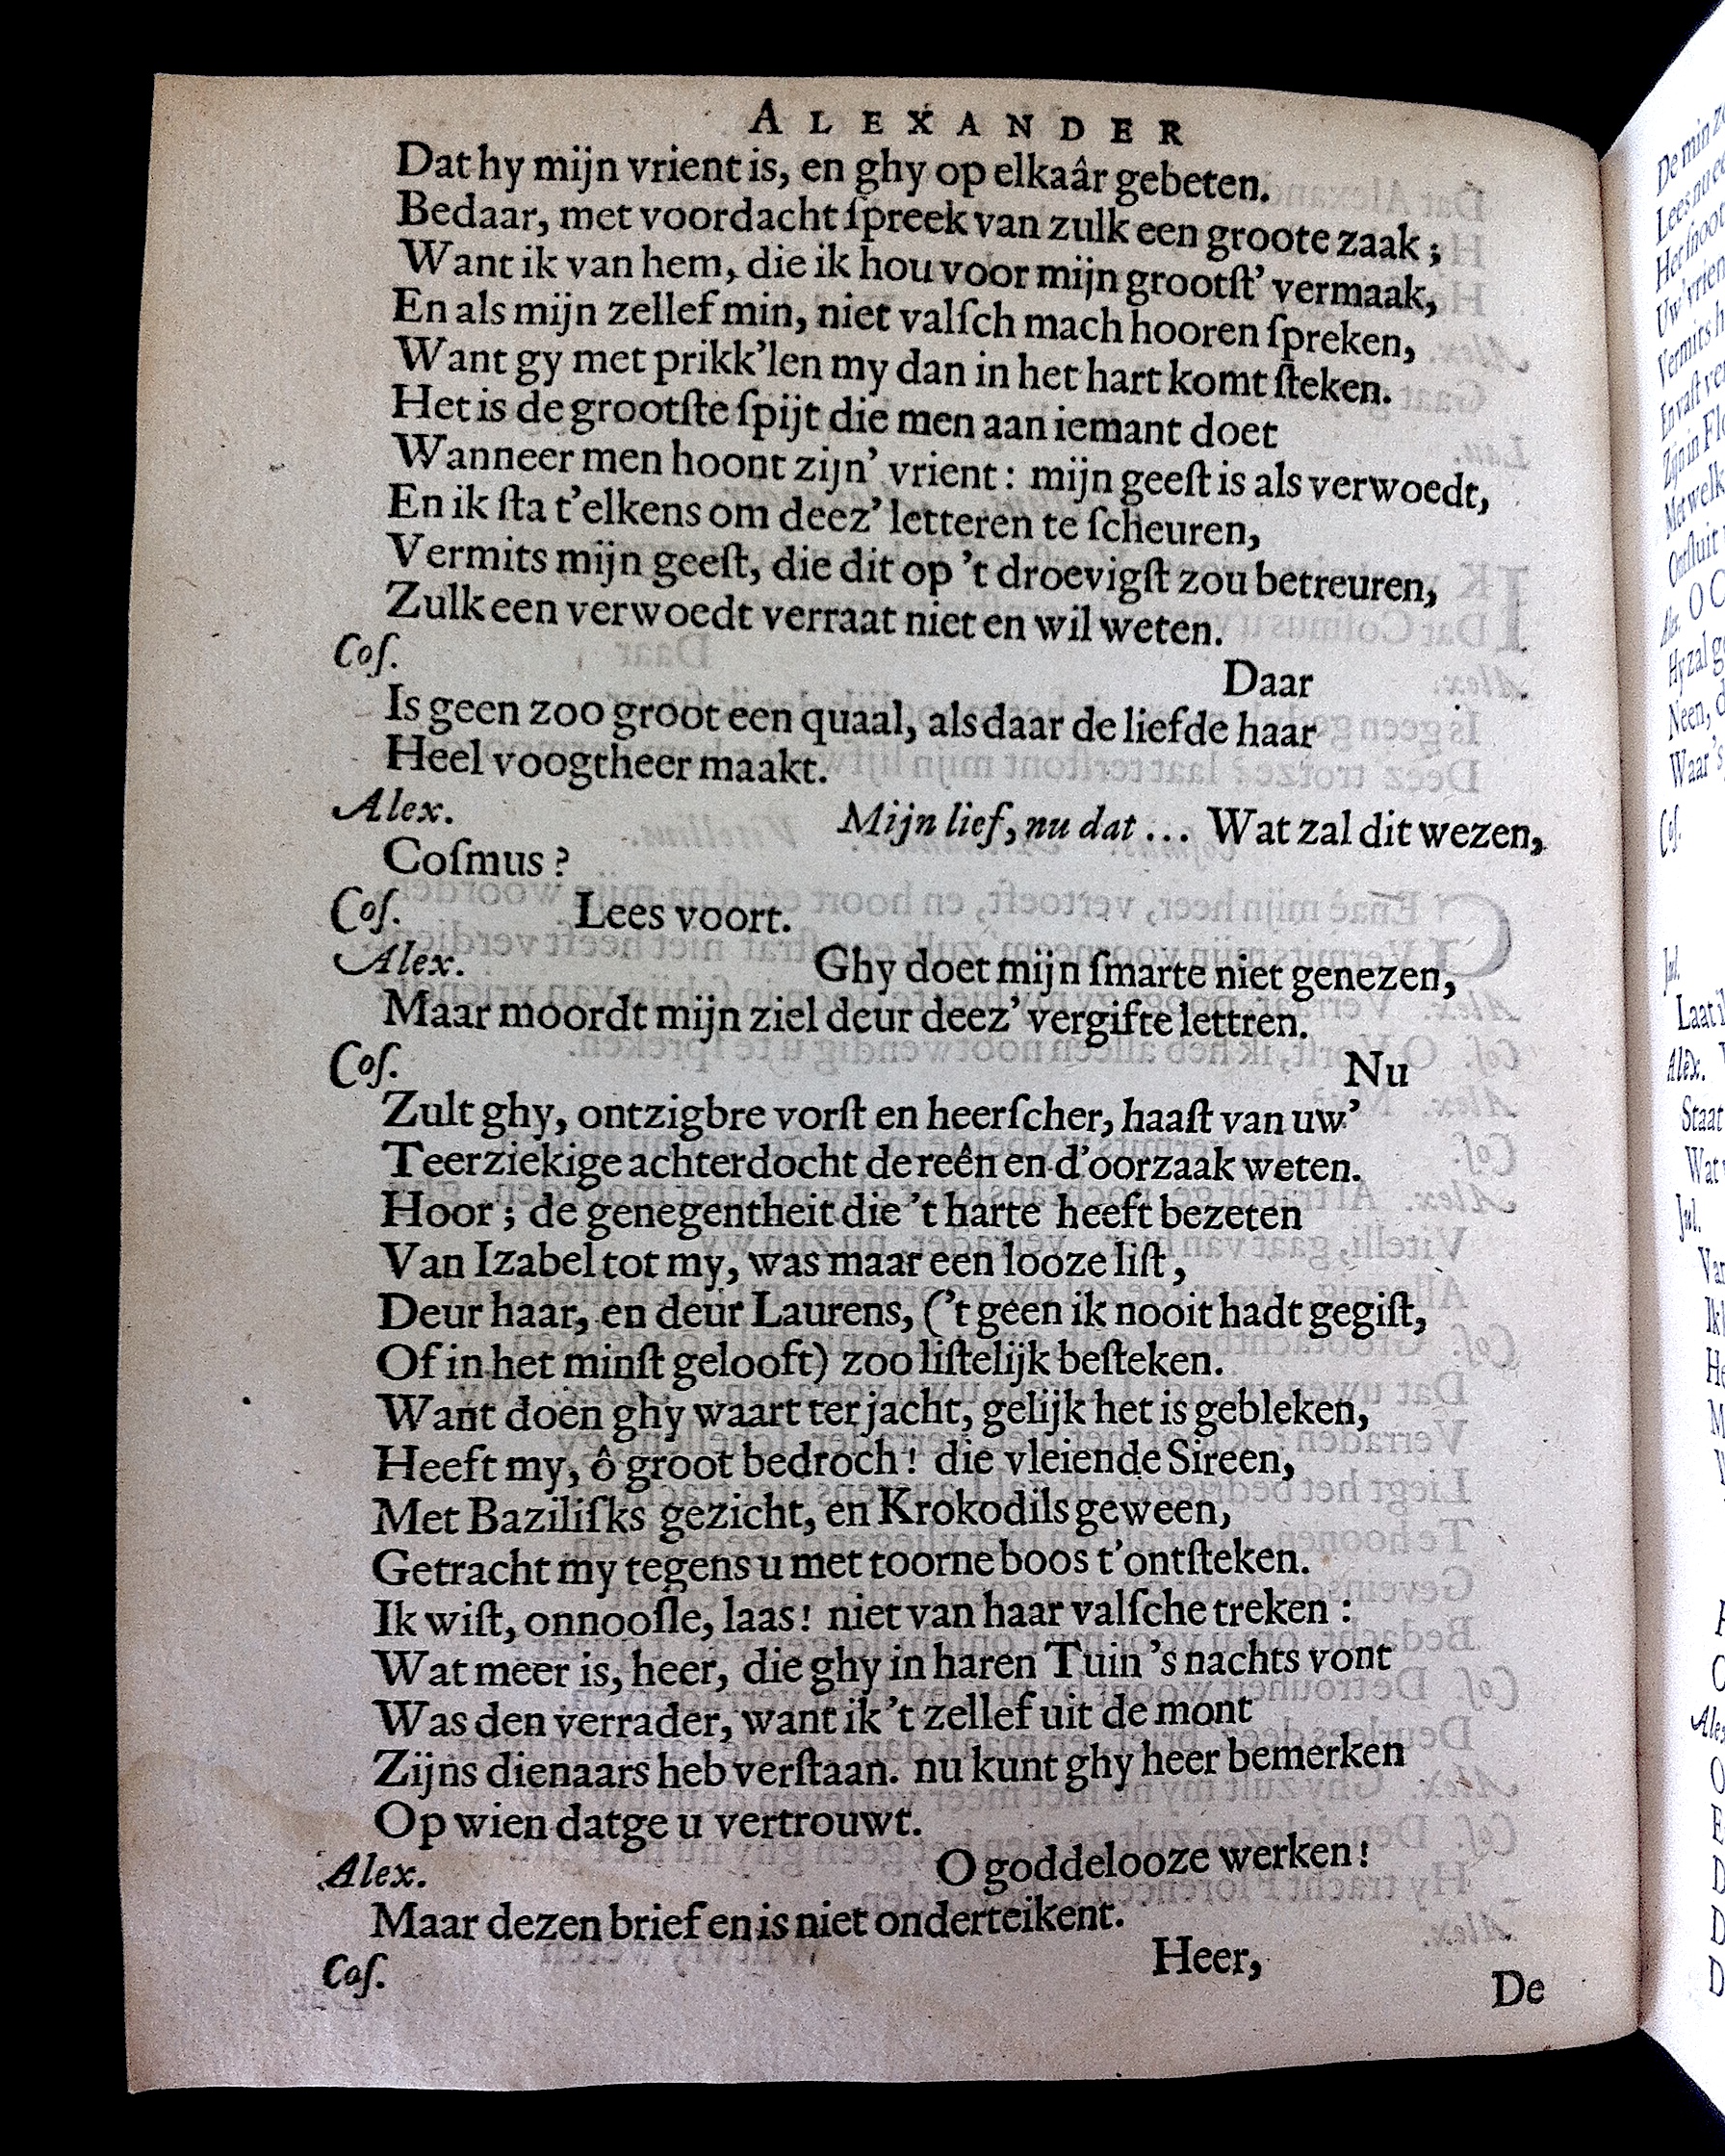 ALEXANDER
Dat hy mijn vrient is, en ghy op elkaâr gebeten.
Bedaar, met voordacht ſpreek van zulk een groote zaak;
Want ik van hem, die ik hou voor mijn grootſt' vermaak,
En als mijn zellef min, niet valſch mach hooren ſpreken,
Want gy met prikk'len my dan in het hart komt ſteken.
Het is de grootſte ſpijt die men aan iemant doet
Wanneer men hoont zijn' vrient: mijn geeſt is als verwoedt,
En ik ſta t'elkens om deez' letteren te ſcheuren,
Vermits mijn geeſt, die dit op 't droevigſt zou betreuren,
Zulk een verwoedt verraat niet en wil weten.
Coſ. Daar
Is geen zoo groot een quaal, als daar de liefde haar
Heel voogtheer maakt.
Alex. Mijn lief, nu dat ... Wat zal dit wezen,
Coſmus?
Coſ. Lees voort.
Alex. Ghy doet mijn ſmarte niet genezen,
Maar moordt mijn ziel deur deez' vergifte lettren.
Coſ. Nu
Zult ghy, ontzigbre vorſt en heerſcher, haaſt van uw'
Teerziekige achterdocht de reên en d'oorzaak weten.
Hoor; de genegentheit die 't harte heeft bezeten
Van Izabel tot my, was maar een looze liſt,
Deur haar, en deur Laurens, ('t geen ik nooit hadt gegiſt,
Of in het minſt gelooft) zoo liſtelijk beſteken.
Want doen ghy waart ter jacht, gelijk het is gebleken,
Heeft my, ô groot bedroch! die vleiende Sireen,
Met Baziliſks gezicht, en Krokodils geween,
Getracht my tegens u met toorne boos t'ontſteken.
Ik wiſt, onnooſle, laas! niet van haar valſche treken:
Wat meer is, heer, die ghy in haren Tuin 's nachts vont
Was den verrader, want ik 't zellef uit de mont
Zijns dienaars heb verſtaan. nu kunt ghy heer bemerken
Op wien datge u vertrouwt.
Alex. O goddelooze werken!
Maar dezen brief en is niet onderteikent.
Coſ. Heer,
De